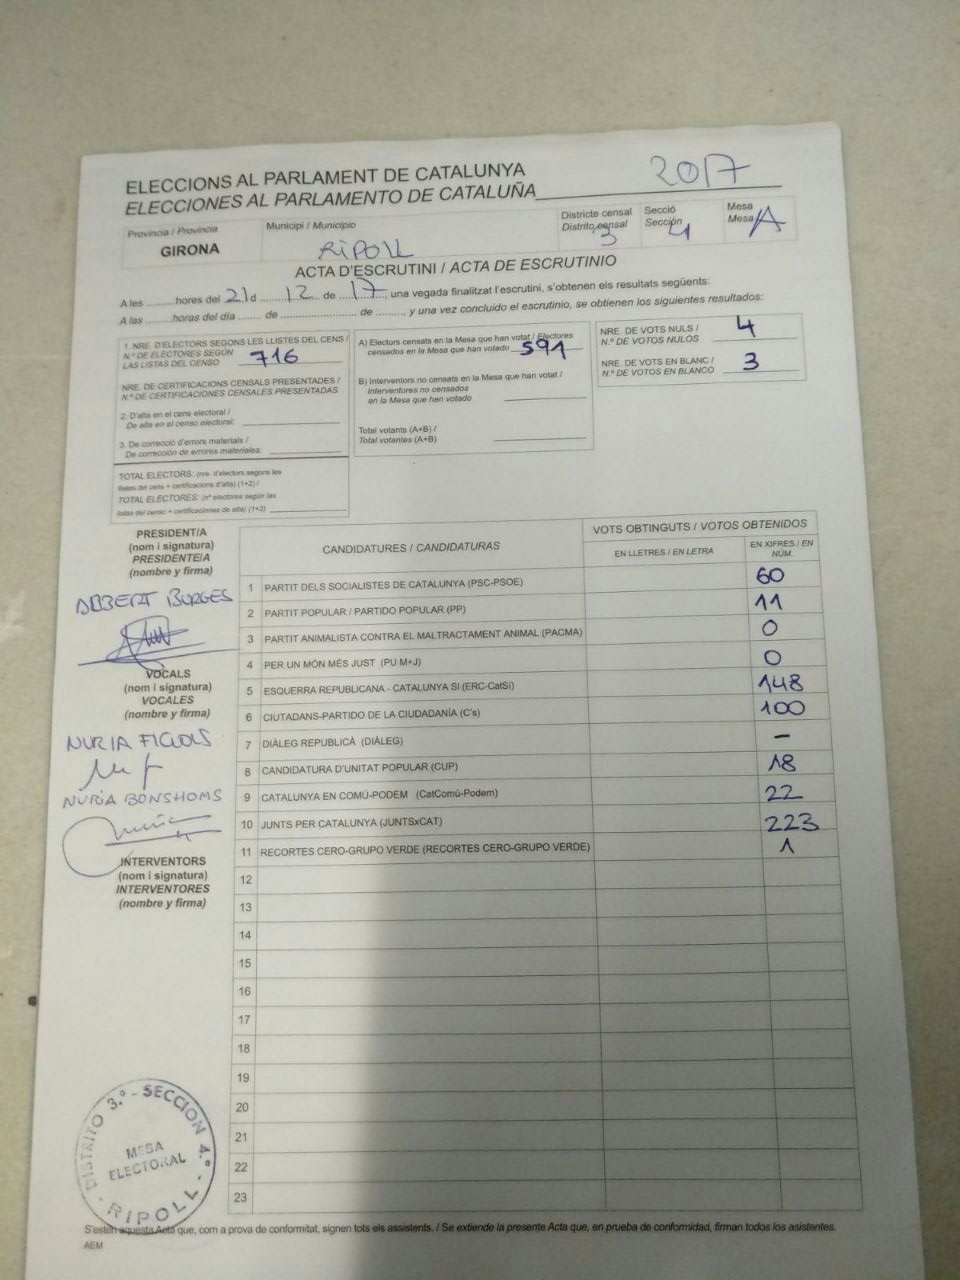 ELECCIONS AL PARLAMENT DE CATALUNYA
ELECCIONES AL PARLAMENTO DE CATALUÑA 2017
Provincia / Provincia
GIRONA
Municipi / Municipio
RIPOLL
Districte censal
Distrito censal
3
Secció
Sección
4
Mesa
Mesa
A
ACTA D'ESCRUTINI / ACTA DE ESCRUTINIO
A les .......... hores del 21 d ... 12 ... de ... 17 ..., una vegada finalitzat l'escrutini, s'obtenen els resultats següents:
A las .......... horas del día ....... de ........................ de ........, y una vez concluido el escrutinio, se obtienen los siguientes resultados:
1. NRE. D'ELECTORS SEGONS LES LLISTES DEL CENS /
N.º DE ELECTORES SEGÚN
LAS LISTAS DEL CENSO 716
NRE. DE CERTIFICACIONS CENSALS PRESENTADES /
N.º DE CERTIFICACIONES CENSALES PRESENTADAS
2. D'alta en el cens electoral /
De alta en el censo electoral:
3. De correcció d'errors materials /
De corrección de errores materiales:
TOTAL ELECTORS: (nre. d'electors segons les
llistes del cens + certificacions d'alta) (1+2) /
TOTAL ELECTORES: (nº electores según las
listas del censo + certificaciones de alta) (1+2)
A) Electors censats en la Mesa que han votat / Electores
censados en la Mesa que han votado 591
B) Interventors no censats en la Mesa que han votat /
Interventores no censados
en la Mesa que han votado
Total votants (A+B) /
Total votantes (A+B)
NRE. DE VOTS NULS /
N.º DE VOTOS NULOS 4
NRE. DE VOTS EN BLANC /
N.º DE VOTOS EN BLANCO 3
PRESIDENT/A
(nom i signatura)
PRESIDENTE/A
(nombre y firma)
ALBERT BURGES
VOCALS
(nom i signatura)
VOCALES
(nombre y firma)
NURIA FIGOLS
NURIA BONSHOMS
INTERVENTORS
(nom i signatura)
INTERVENTORES
(nombre y firma)
CANDIDATURES / CANDIDATURAS
VOTS OBTINGUTS / VOTOS OBTENIDOS
EN LLETRES / EN LETRA
EN XIFRES / EN
NÚM.
1 PARTIT DELS SOCIALISTES DE CATALUNYA (PSC-PSOE) 60
2 PARTIT POPULAR / PARTIDO POPULAR (PP) 11
3 PARTIT ANIMALISTA CONTRA EL MALTRACTAMENT ANIMAL (PACMA) 0
4 PER UN MÓN MÉS JUST (PU M+J) 0
5 ESQUERRA REPUBLICANA - CATALUNYA SI (ERC-CatSí) 148
6 CIUTADANS-PARTIDO DE LA CIUDADANÍA (C's) 100
7 DIÀLEG REPUBLICÀ (DIÀLEG) -
8 CANDIDATURA D'UNITAT POPULAR (CUP) 18
9 CATALUNYA EN COMÚ-PODEM (CatComú-Podem) 22
10 JUNTS PER CATALUNYA (JUNTSxCAT) 223
11 RECORTES CERO-GRUPO VERDE (RECORTES CERO-GRUPO VERDE) 1
12
13
14
15
16
17
18
19
20
21
22
23
DISTRITO 3.º - SECCION 4.º
MESA
ELECTORAL
- RIPOLL -
S'estén aquesta Acta que, com a prova de conformitat, signen tots els assistents. / Se extiende la presente Acta que, en prueba de conformidad, firman todos los asistentes.
AEM